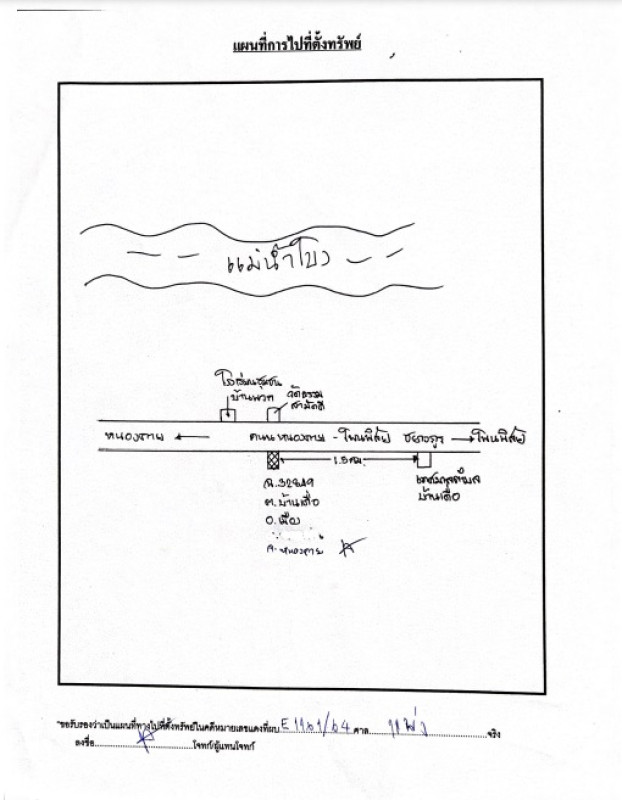 แผนที่การไปที่ตั้งทรัพย์
แม่น้ำโขง
โรงเรียนชุมชน
บ้านพวก
วัดธรรม
สามัคคี
หนองคาย
ถนน หนองคาย - โพนพิสัย
โพนพิสัย
1.5 กม.
ฉ.32849
ต.บ้านเดื่อ
อ.เมือง
จ.หนองคาย
เทศบาลตำบล
บ้านเดื่อ
"ขอรับรองว่าเป็นแผนที่ทางไปที่ตั้งทรัพย์ในคดีหมายเลขแดงที่ผบ E1161/64 ศาล แพ่ง จริง
ลงชื่อ โจทก์/ผู้แทนโจทก์